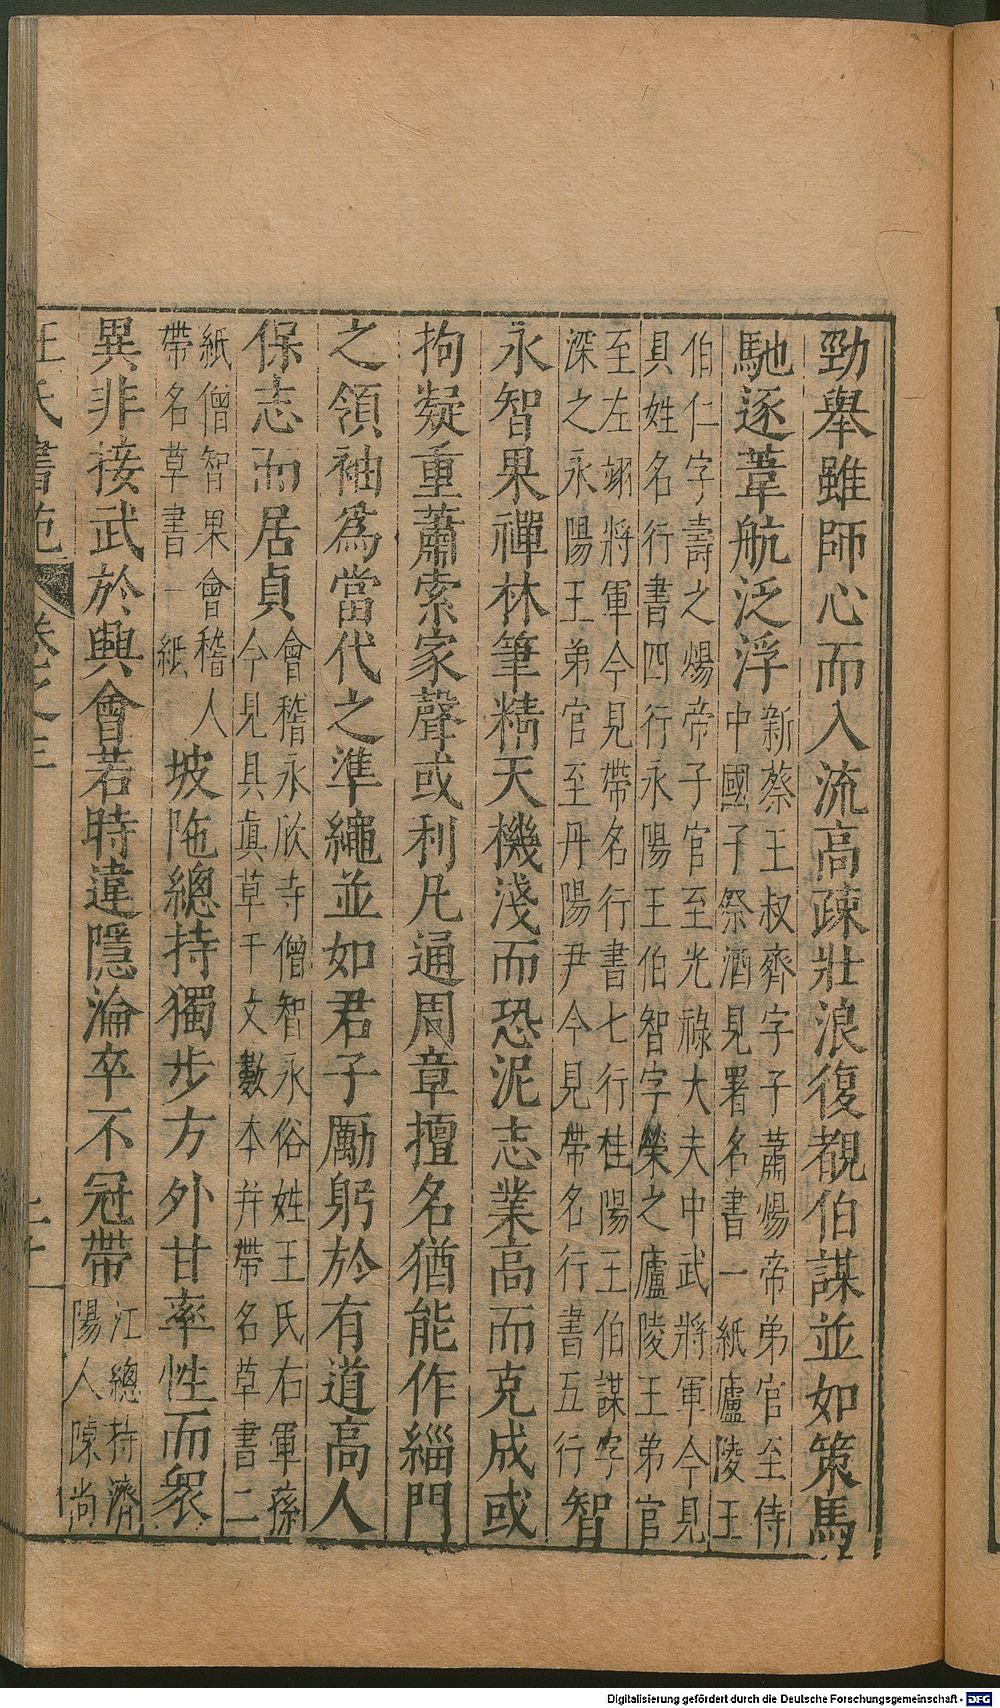 勁舉雖師心而入流高疎壯浪復覩伯謀並如策馬
馳逐葦航泛浮
新蔡王叔齊字子蕭煬帝弟官至侍
中國子祭酒見署名書一紙廬陵王
伯仁字壽之煬帝子官至光祿大夫中武將軍今見
具姓名行書四行永陽王伯智字榮之廬陵王弟官
至左翊將軍今見帶名行書七行桂陽王伯謀字
深之永陽王弟官至丹陽尹今見帶名行書五行
智
永智果禪林筆精天機淺而恐泥志業高而克成或
拘凝重蕭索家聲或利凡通周章擅名猶能作緇門
之領袖爲當代之準繩並如君子勵躬於有道高人
保志而居貞
會稽永欣寺僧智永俗姓王氏右軍孫
今見具眞草千文數本并帶名草書二
紙僧智果會稽人
帶名草書一紙
坡陁總持獨步方外甘率性而衆
異非接武於興會若時違隱淪卒不冠帶
江總持濟
陽人陳尚
王氏書苑
卷之三